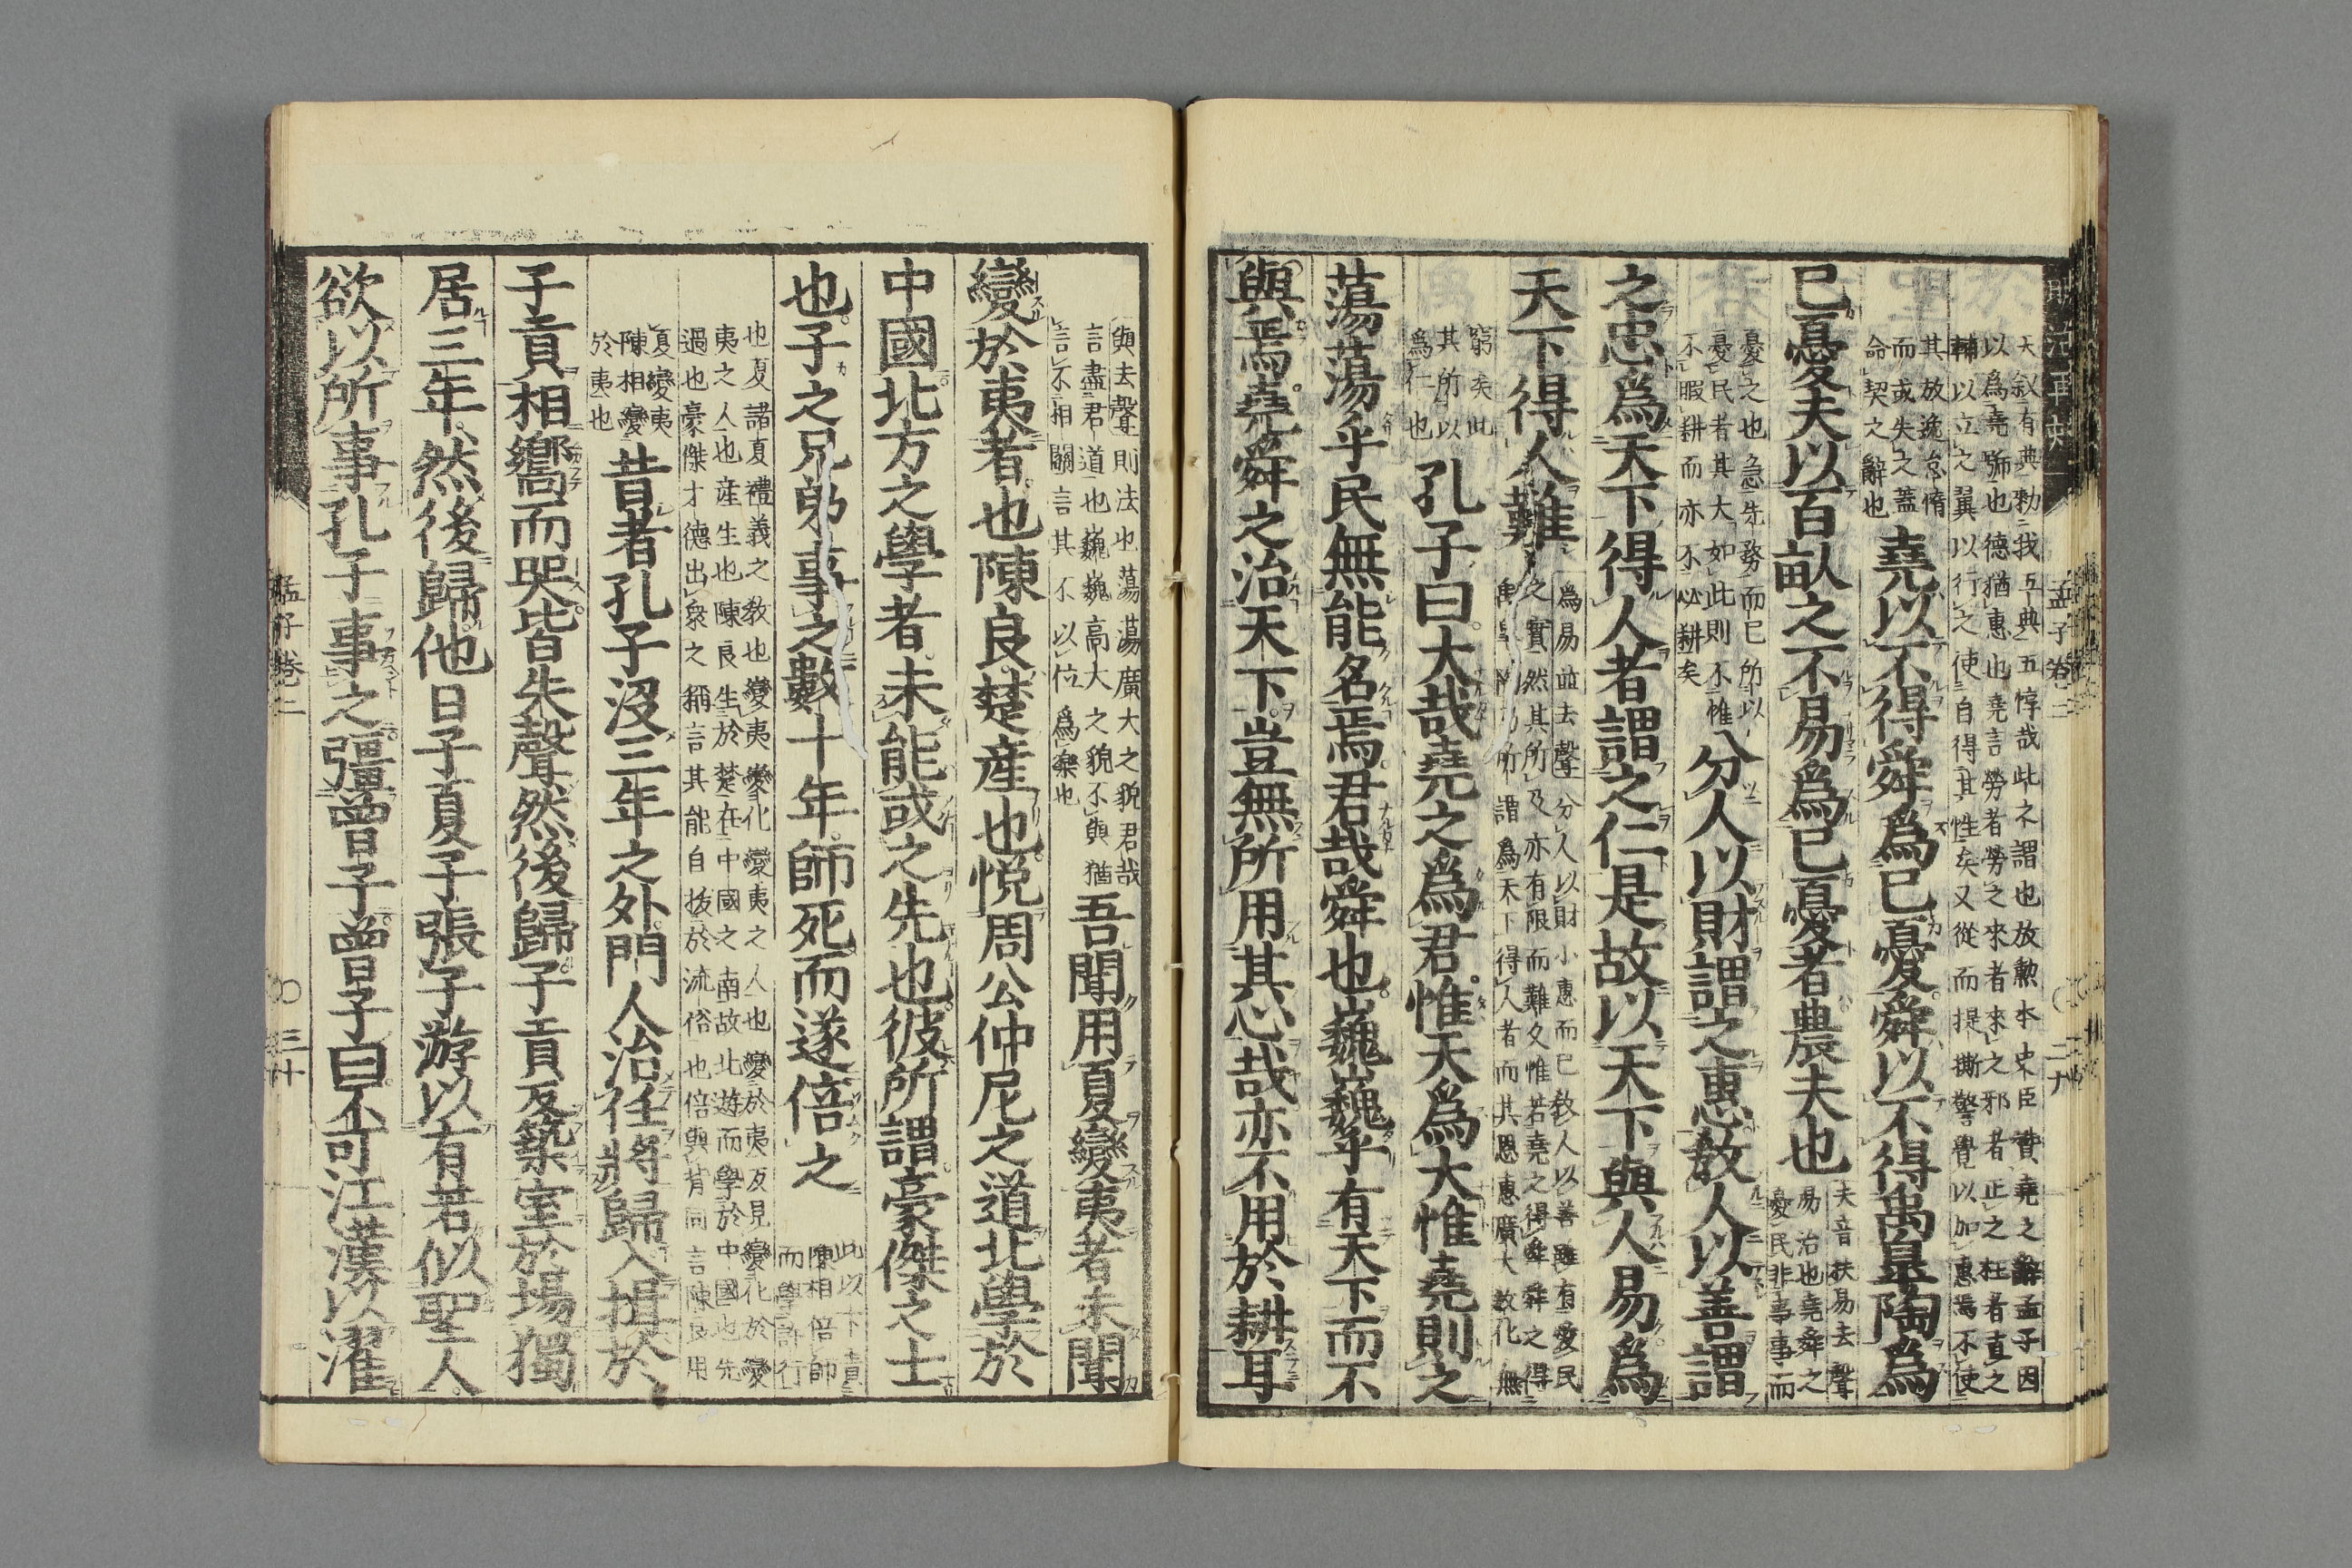 天叙有典勅我五典五惇哉此之謂也放勲本史臣贊堯之辭孟子因
以爲堯號也德猶惠也堯言勞者勞之來者來之邪者正之枉者直之
輔以立之翼以行之使自得其性矣又從而提撕警覺以加惠焉不使
其放逸怠惰
而或失之蓋
命契之辭也
堯以不得舜爲己憂舜以不得禹皐陶爲
己憂夫以百畝之不易爲己憂者農夫也
夫音扶易去聲
易治也堯舜之
憂民非事事而
憂之也急先務而已所以
憂民者其大如此則不惟
不暇耕而亦不必耕矣
分人以財謂之惠敎人以善謂
之忠爲天下得人者謂之仁是故以天下與人易爲
天下得人難
爲易並去聲分人以財小惠而已敎人以善雖有愛民
之實然其所及亦有限而難久惟若堯之得舜舜之得
禹皐陶乃所謂爲天下得人者而其恩惠廣大敎化無
窮矣此
其所以
爲仁也
孔子曰大哉堯之爲君惟天爲大惟堯則之
蕩蕩乎民無能名焉君哉舜也巍巍乎有天下而不
與焉堯舜之治天下豈無所用其心哉亦不用於耕耳
孟子卷二
二十九
與去聲則法也蕩蕩廣大之貌君哉
言盡君道也巍巍高大之貌不與猶
言不相關言其不以位爲樂也
吾聞用夏變夷者未聞
變於夷者也陳良楚産也悦周公仲尼之道北學於
中國北方之學者未能或之先也彼所謂豪傑之士
也子之兄弟事之數十年師死而遂倍之
此以下責
陳相倍師
而學許行
也夏諸夏禮義之敎也變夷變化變夷之人也變於夷反見變化於變
夷之人也産生也陳良生於楚在中國之南故北遊而學於中國也先
過也豪傑才德出衆之稱言其能自拔於流俗也倍與背同言陳良用
夏變夷
陳相變
於夷也
昔者孔子沒三年之外門人治任將歸入揖於
子貢相嚮而哭皆失聲然後歸子貢反築室於場獨
居三年然後歸他日子夏子張子游以有若似聖人
欲以所事孔子事之彊曾子曾子曰不可江漢以濯
孟子卷二
三十